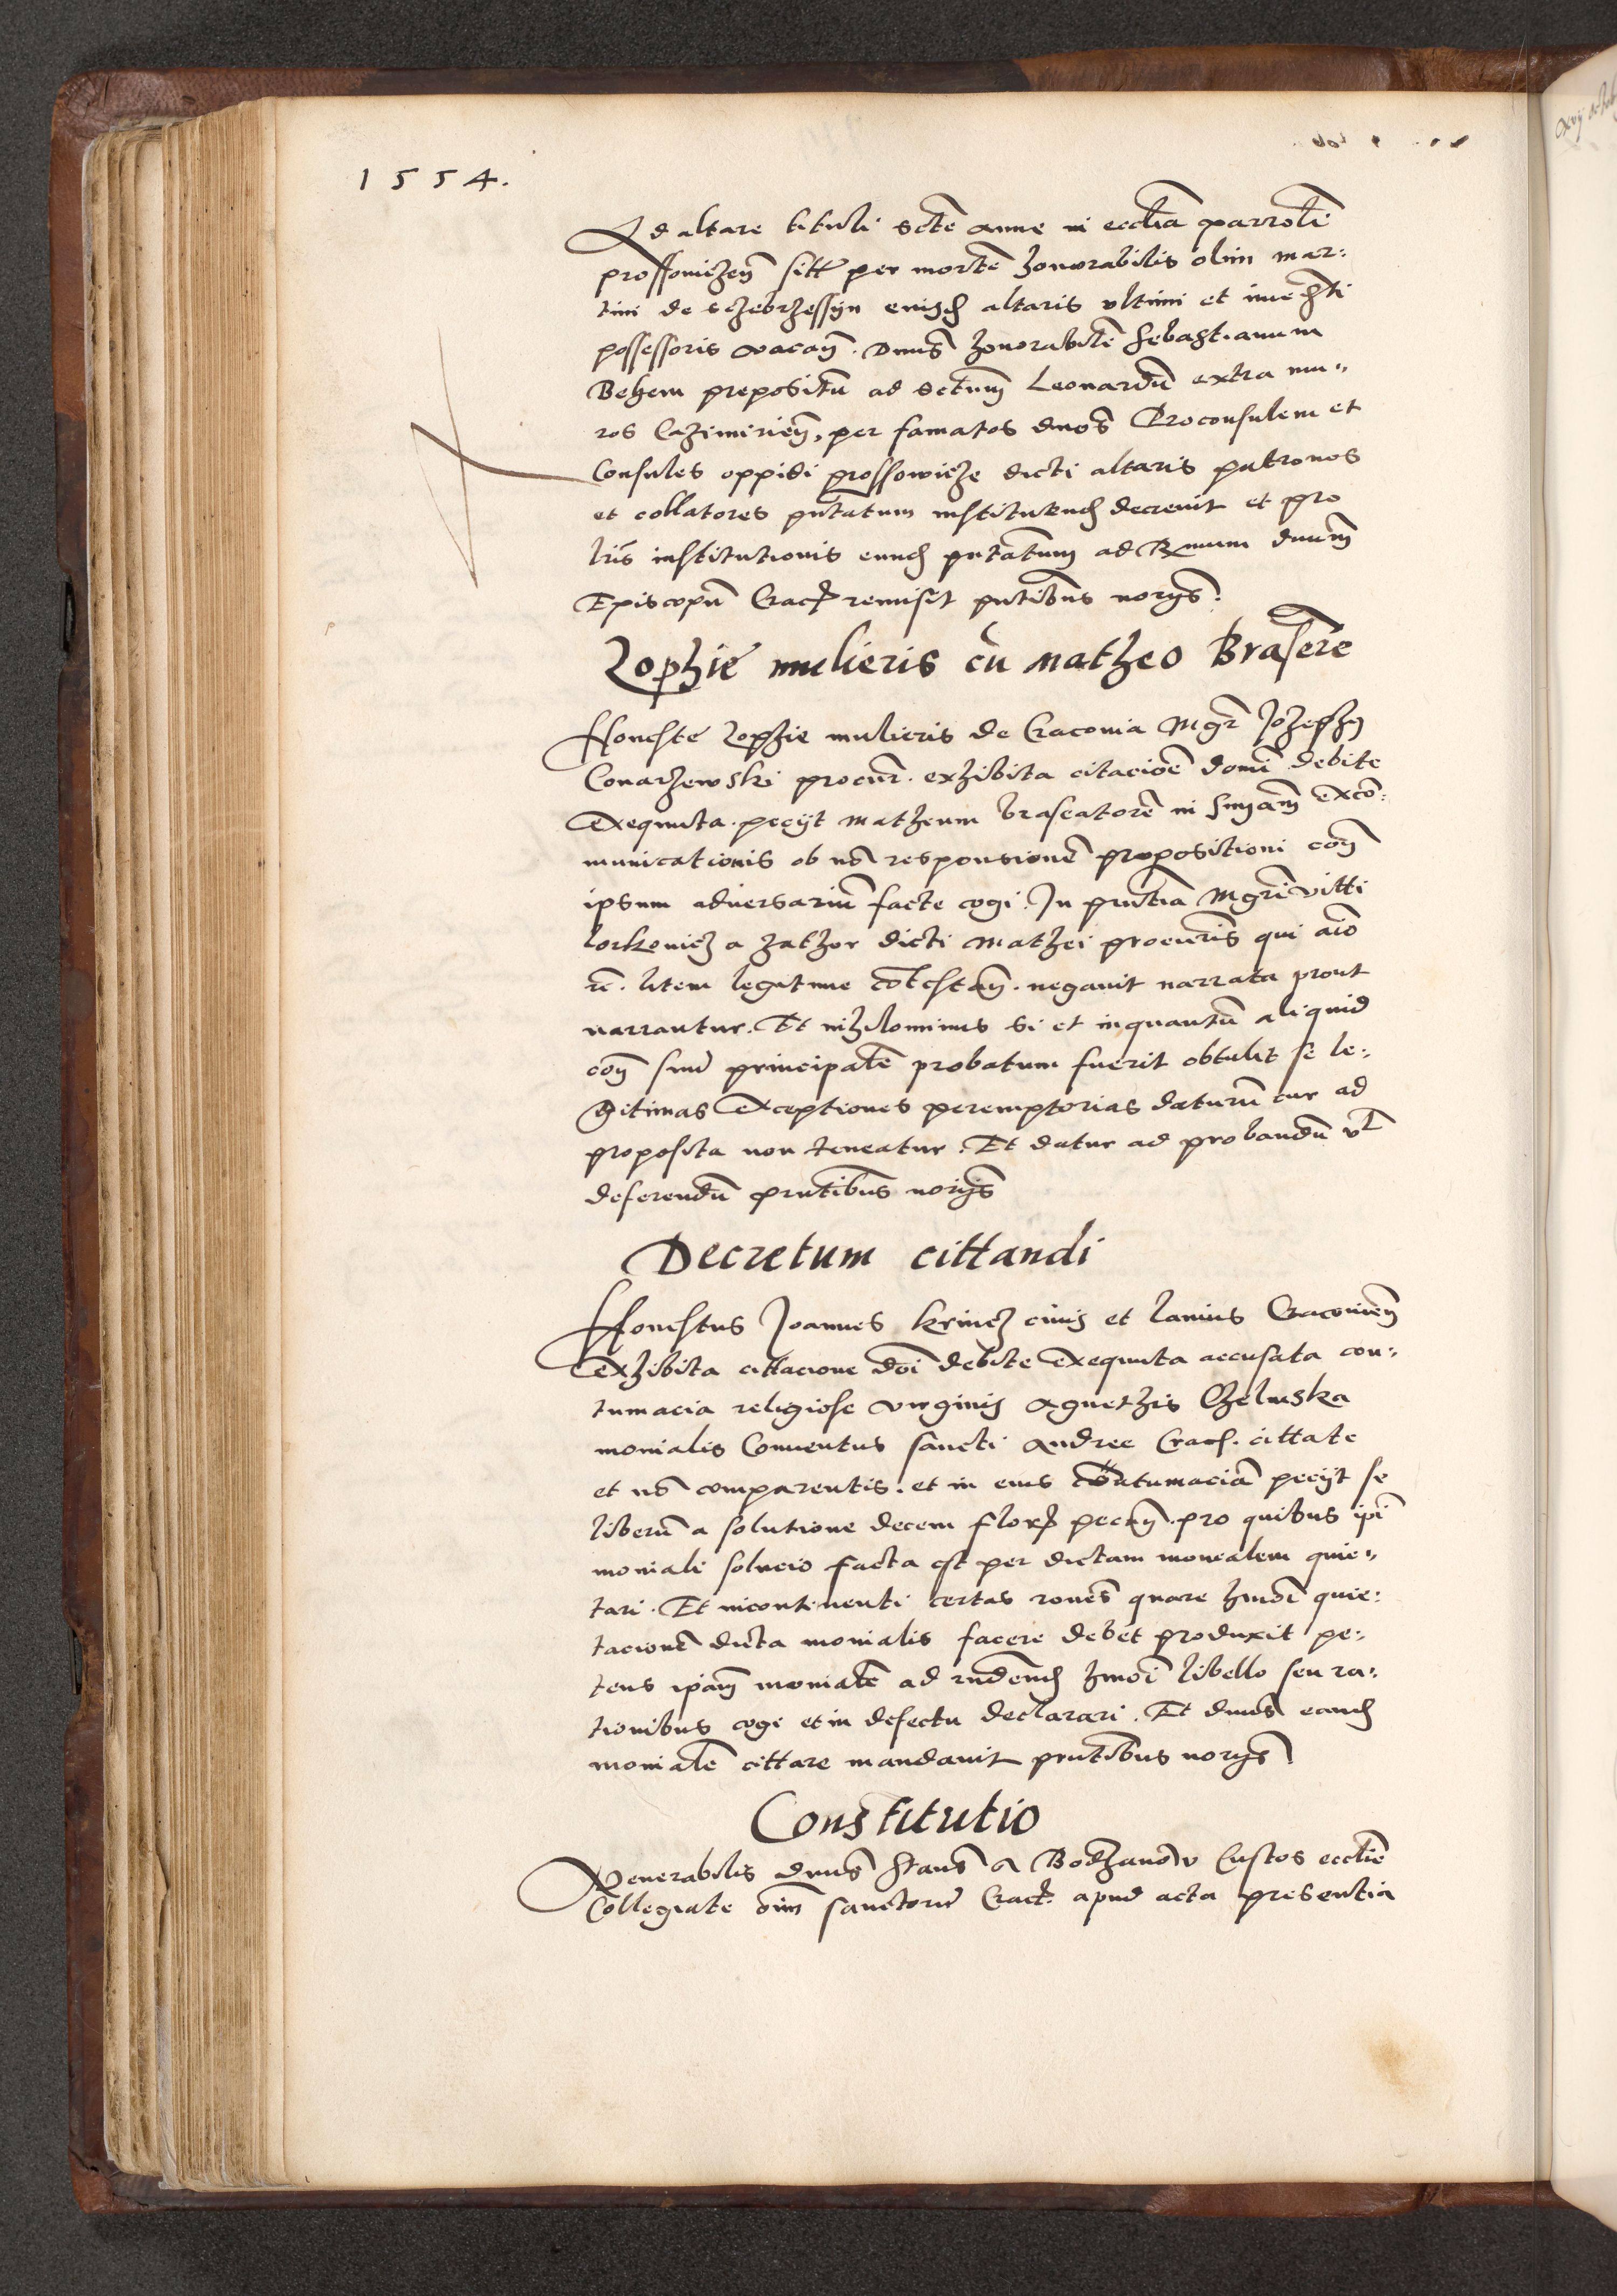 1554.
Ad altare tituli scte Anne in ecclia parrole
prossouiczen sitt per morte honorabilis olim Mar:
tini de Sczebrzessyn eiusd altaris vltimi et imme
possessoris vacan. Dnus honorabile Sebastianum
Behem prepositu ad sctum Leonardu extra mu„
ros Cazimirien, per famatos dnos Proconsulem et
Consules oppidi prossowicze dicti altaris patronos
et collatores pntatum instituend decreuit et pro
lris institutionis eund pntatum ad Rmum dnum
Episcopu Crac remisit pntibus norys.
Zophie mulieris cu Matheo Brasere
Honeste Zophie mulieris de Cracouia Mgr Jozephy
Conarzewski procur. exhibita citacioe domi debite
Exequuta. peciit Matheum braseatore in snyam exco:
municationis ob no responsione propositioni con
ipsum aduersariu facte cogi. In pntia Mgri Vitti
lorkouicz a zathor dicti Mathei procuris qui aio
re. litem legitime cotestan. negauit narrata prout
narrantur. Et nihilominus si et inquantu aliquid
con suu principale probatum fuerit obtulit se le:
gitimas Exceptiones peremptorias daturu cur ad
proposita non teneatur. Et datur ad probandu vl
deferendu pntibus norys
Decretum cittandi
Honestus Joannes krincz ciuis et lanius Cracouien
exhibita cittacione doi debite exequuta accusata con„
tumacia religiose virginis Agnethis Chelmska
monialis Conuentus sancti Andree Crac. cittate
et no comparentis. et in eius cotumacia peciit se
liberu a solutione decem flor pecun. pro quibus ipi
moniali solucio facta est per dictam monialem quie„
tari. Et incontinenti certas rones quare hmoi quie:
tacione dicta monialis facere debet produxit pe„
tens ipam moniale ad rndend hmoi libello seu ra„
tionibus cogi et in defectu declarari. Et dnus eand
moniale cittare mandauit pntibus norys
Constitutio
Venerabilis dnus Stans a Bodzanow Custos ecclie
Collegiate oim sanctoru Crac. apud acta presentia